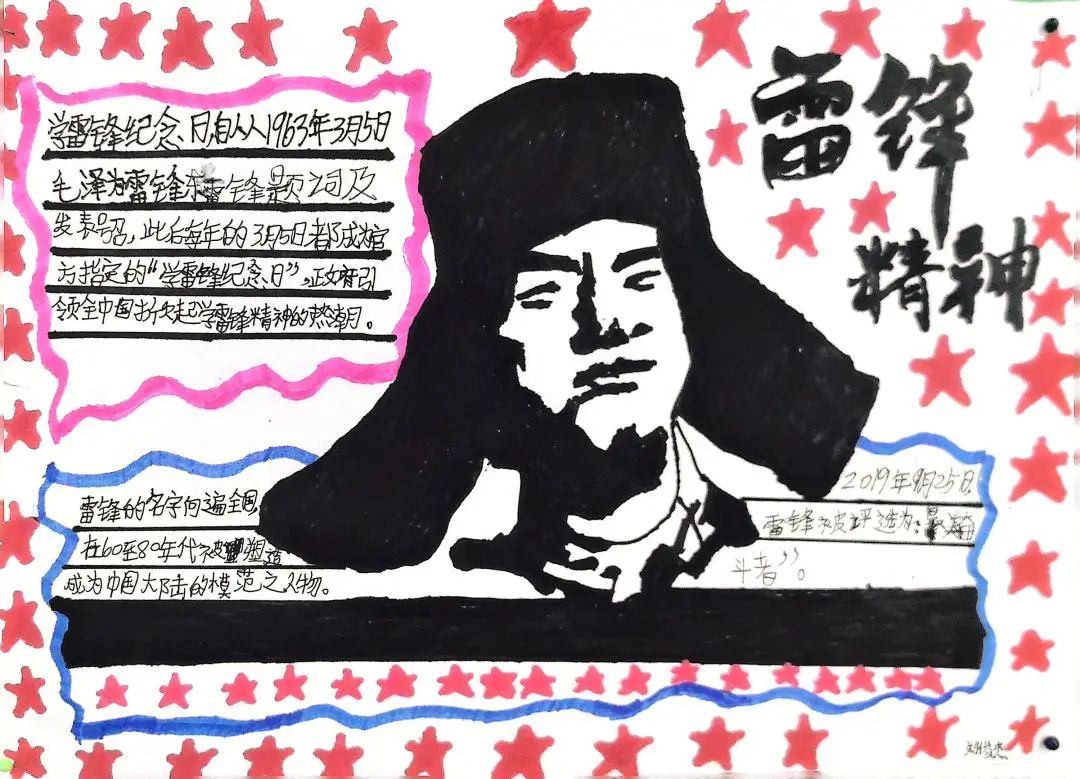 雷锋
精神
学雷锋纪念日自从1963年3月5日
毛泽为雷锋雷锋题词及
发表号召,此后每年的3月5日都成
为指定的“学雷锋纪念日”,政府引
领全中国掀起学雷锋精神的热潮。
雷锋的名字向遍全国,
在60至80年代被塑造
成为中国大陆的模范之人物。
2019年9月25日,
雷锋被评选为:最美奋
斗者”。